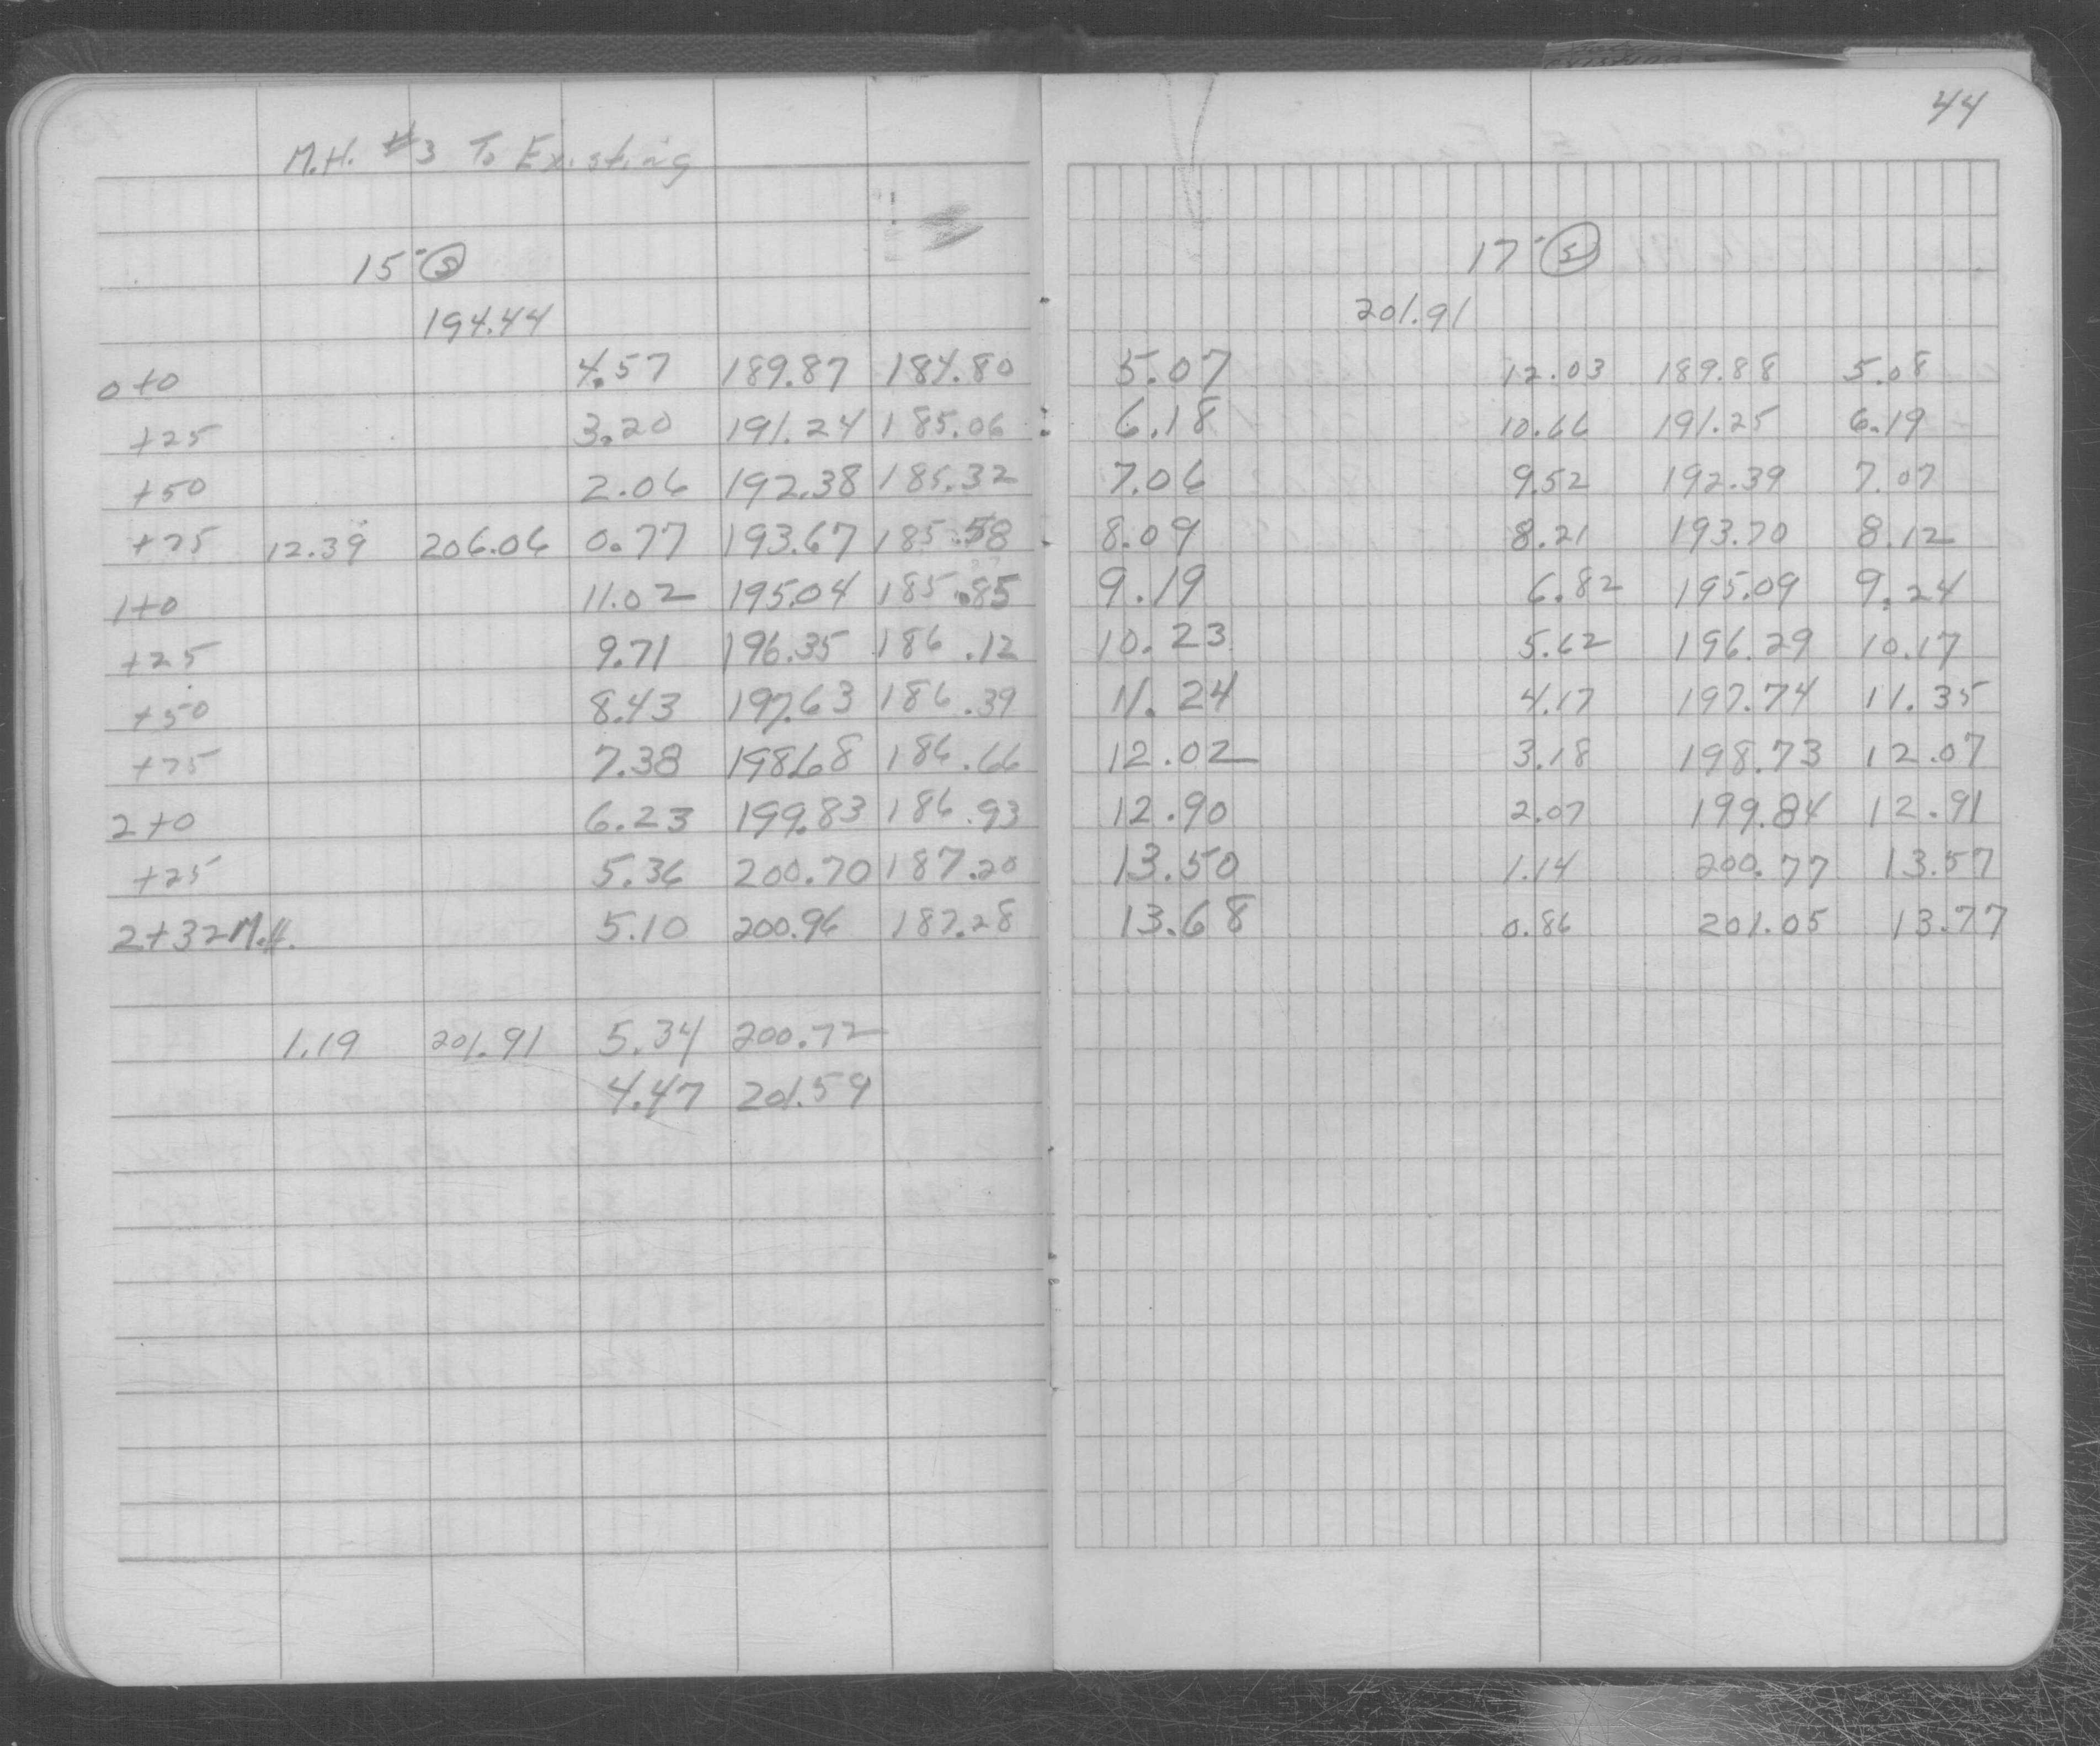 44
M.H. #3 To Existing
15' S 17' S
194.44 201.91
0+0 4.57 189.87 184.80 5.07 12.03 189.88 5.08
+25 3.20 191.24 185.06 6.18 10.66 191.25 6.19
+50 2.06 192.38 185.32 7.06 9.52 192.39 7.07
+75 12.39 206.06 0.77 193.67 185.58 8.09 8.21 193.70 8.12
1+0 11.02 195.04 185.85 9.19 6.82 195.09 9.24
+25 9.71 196.35 186.12 10.23 5.62 196.29 10.17
+50 8.43 197.63 186.39 11.24 4.17 197.74 11.35
+75 7.38 198.68 186.66 12.02 3.18 198.73 12.07
2+0 6.23 199.83 186.93 12.90 2.07 199.84 12.91
+25 5.36 200.70 187.20 13.50 1.14 200.77 13.57
2+32 M.H. 5.10 200.96 187.28 13.68 0.86 201.05 13.77
1.19 201.91 5.34 200.72
4.47 201.59